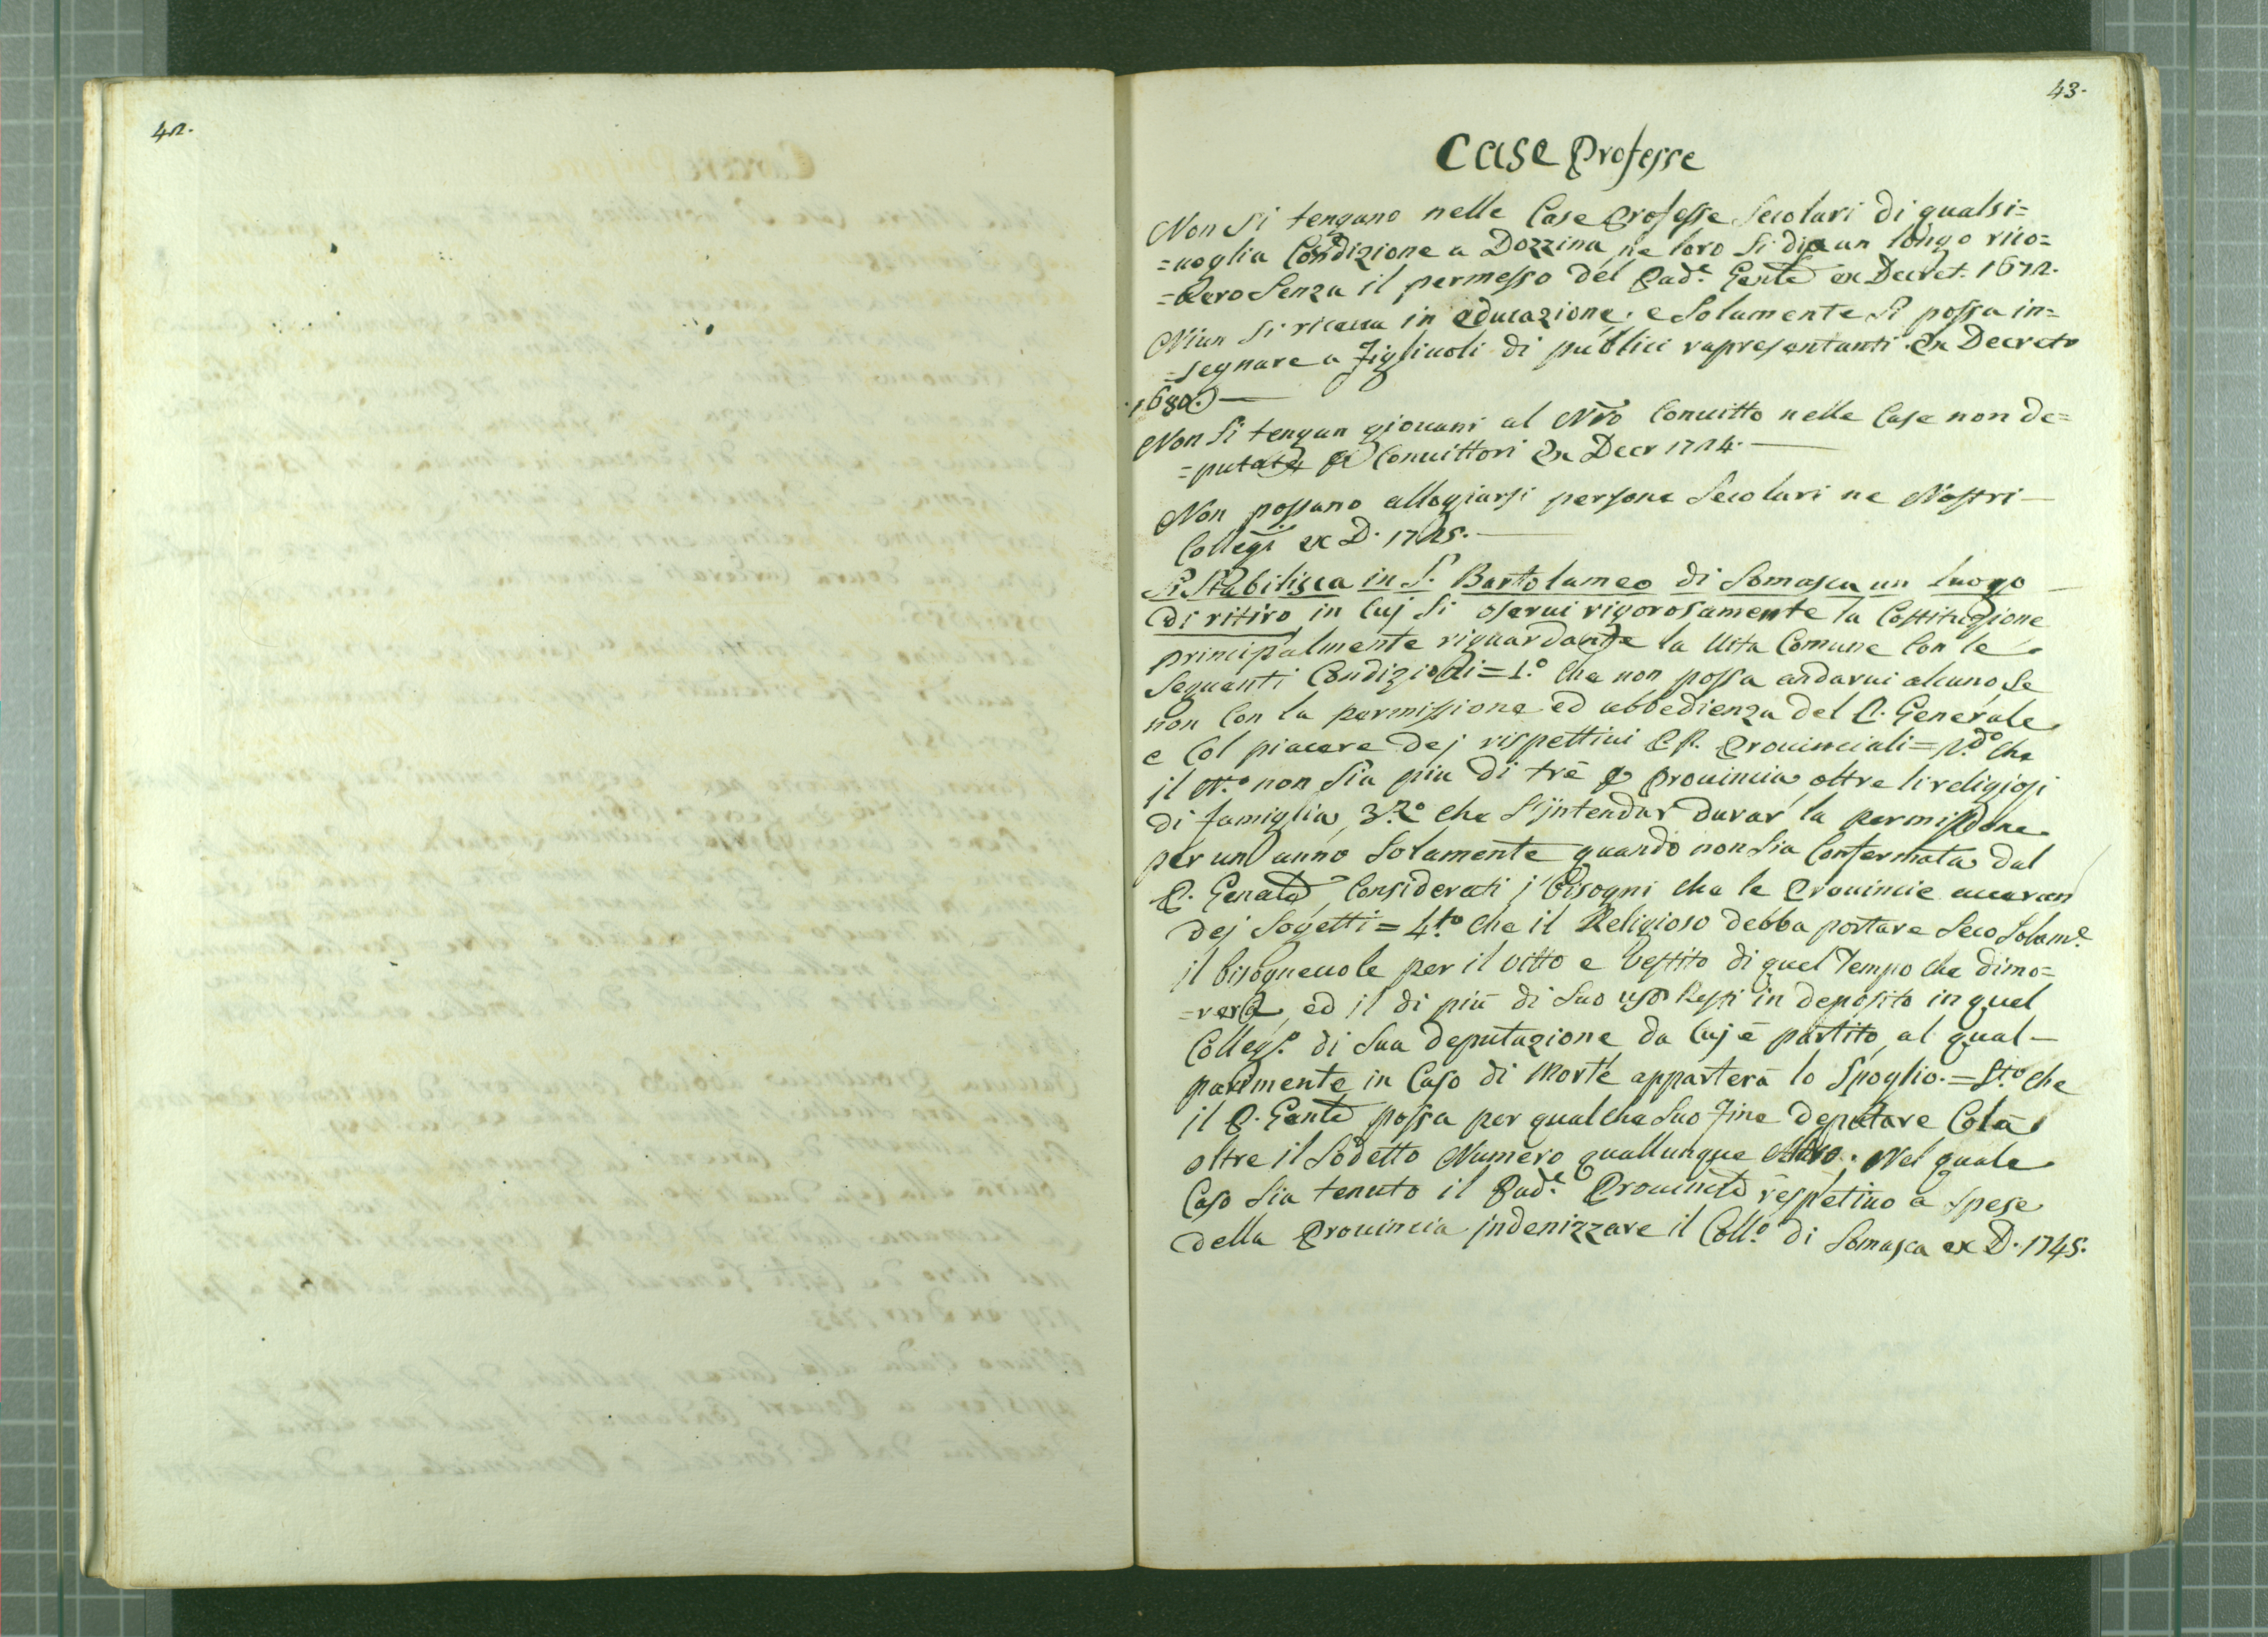 42.
43.
Case Professe
Non si tengano nelle Case Professe Secolari di qualsi=
=uoglia Condizione a Dozzina, ne loro si dia un longo rico=
=uero Senza il permesso del Pad.e Genle ex Decret. 1672.
Niun si riceua in educazione. e Solamente si possa in=
=segnare a Figliuoli di publici rapresentanti. Ex Decreto
1680.
Non Si tengan giouani al Nro Conuitto nelle Case non de=
=putate Conuittori Ex Decr 1724.
Non possano allogiarsi persone Secolari ne Nostri
Collegi ex D. 1725.
Si Stabilisca in S. Bartolameo di Somasca un luogo
di ritiro in Cuj Si oserui rigorosamente la Costituzione
principalmente riguardante la Uita Comune Con le
Seguenti Condizioni = 1.o Che non possa andarui alcuno, Se
non Con la permissione ed ubbedienza del P. Generale
e Col piacere dej rispettiui P.P. Prouinciali = 2.do Che
il N.o non Sia piu di trè Prouincia, oltre li religiosi
di famiglia, 3.o che S'intendar durar la permissione
per un anno Solamente quando non Sia Confermata dal
P. Genale, Considerati j bisogni che le Prouincie aueran
dej Sogetti = 4.to Che il Religioso debba portare Seco Solam.e
il bisogneuole per il Vitto e Vestito di quel Tempo che dimo=
=rerà, ed il di più di Suo uso Resti in deposito in quel
Colleg.o di Sua deputazione da Cuj è partito, al qual
parimente in Caso di Morte apparterà lo Spoglio. = 5.to che
il P. Genle possa per qualche Suo Fine deputare Colà
oltre il Sodetto Numero quallunque Altro. Nel quale
Caso Sia tenuto il Pad.e Prouincle respetiuo a Spese
della Prouincia indenizzare il Coll.o di Somasca ex D. 1745.